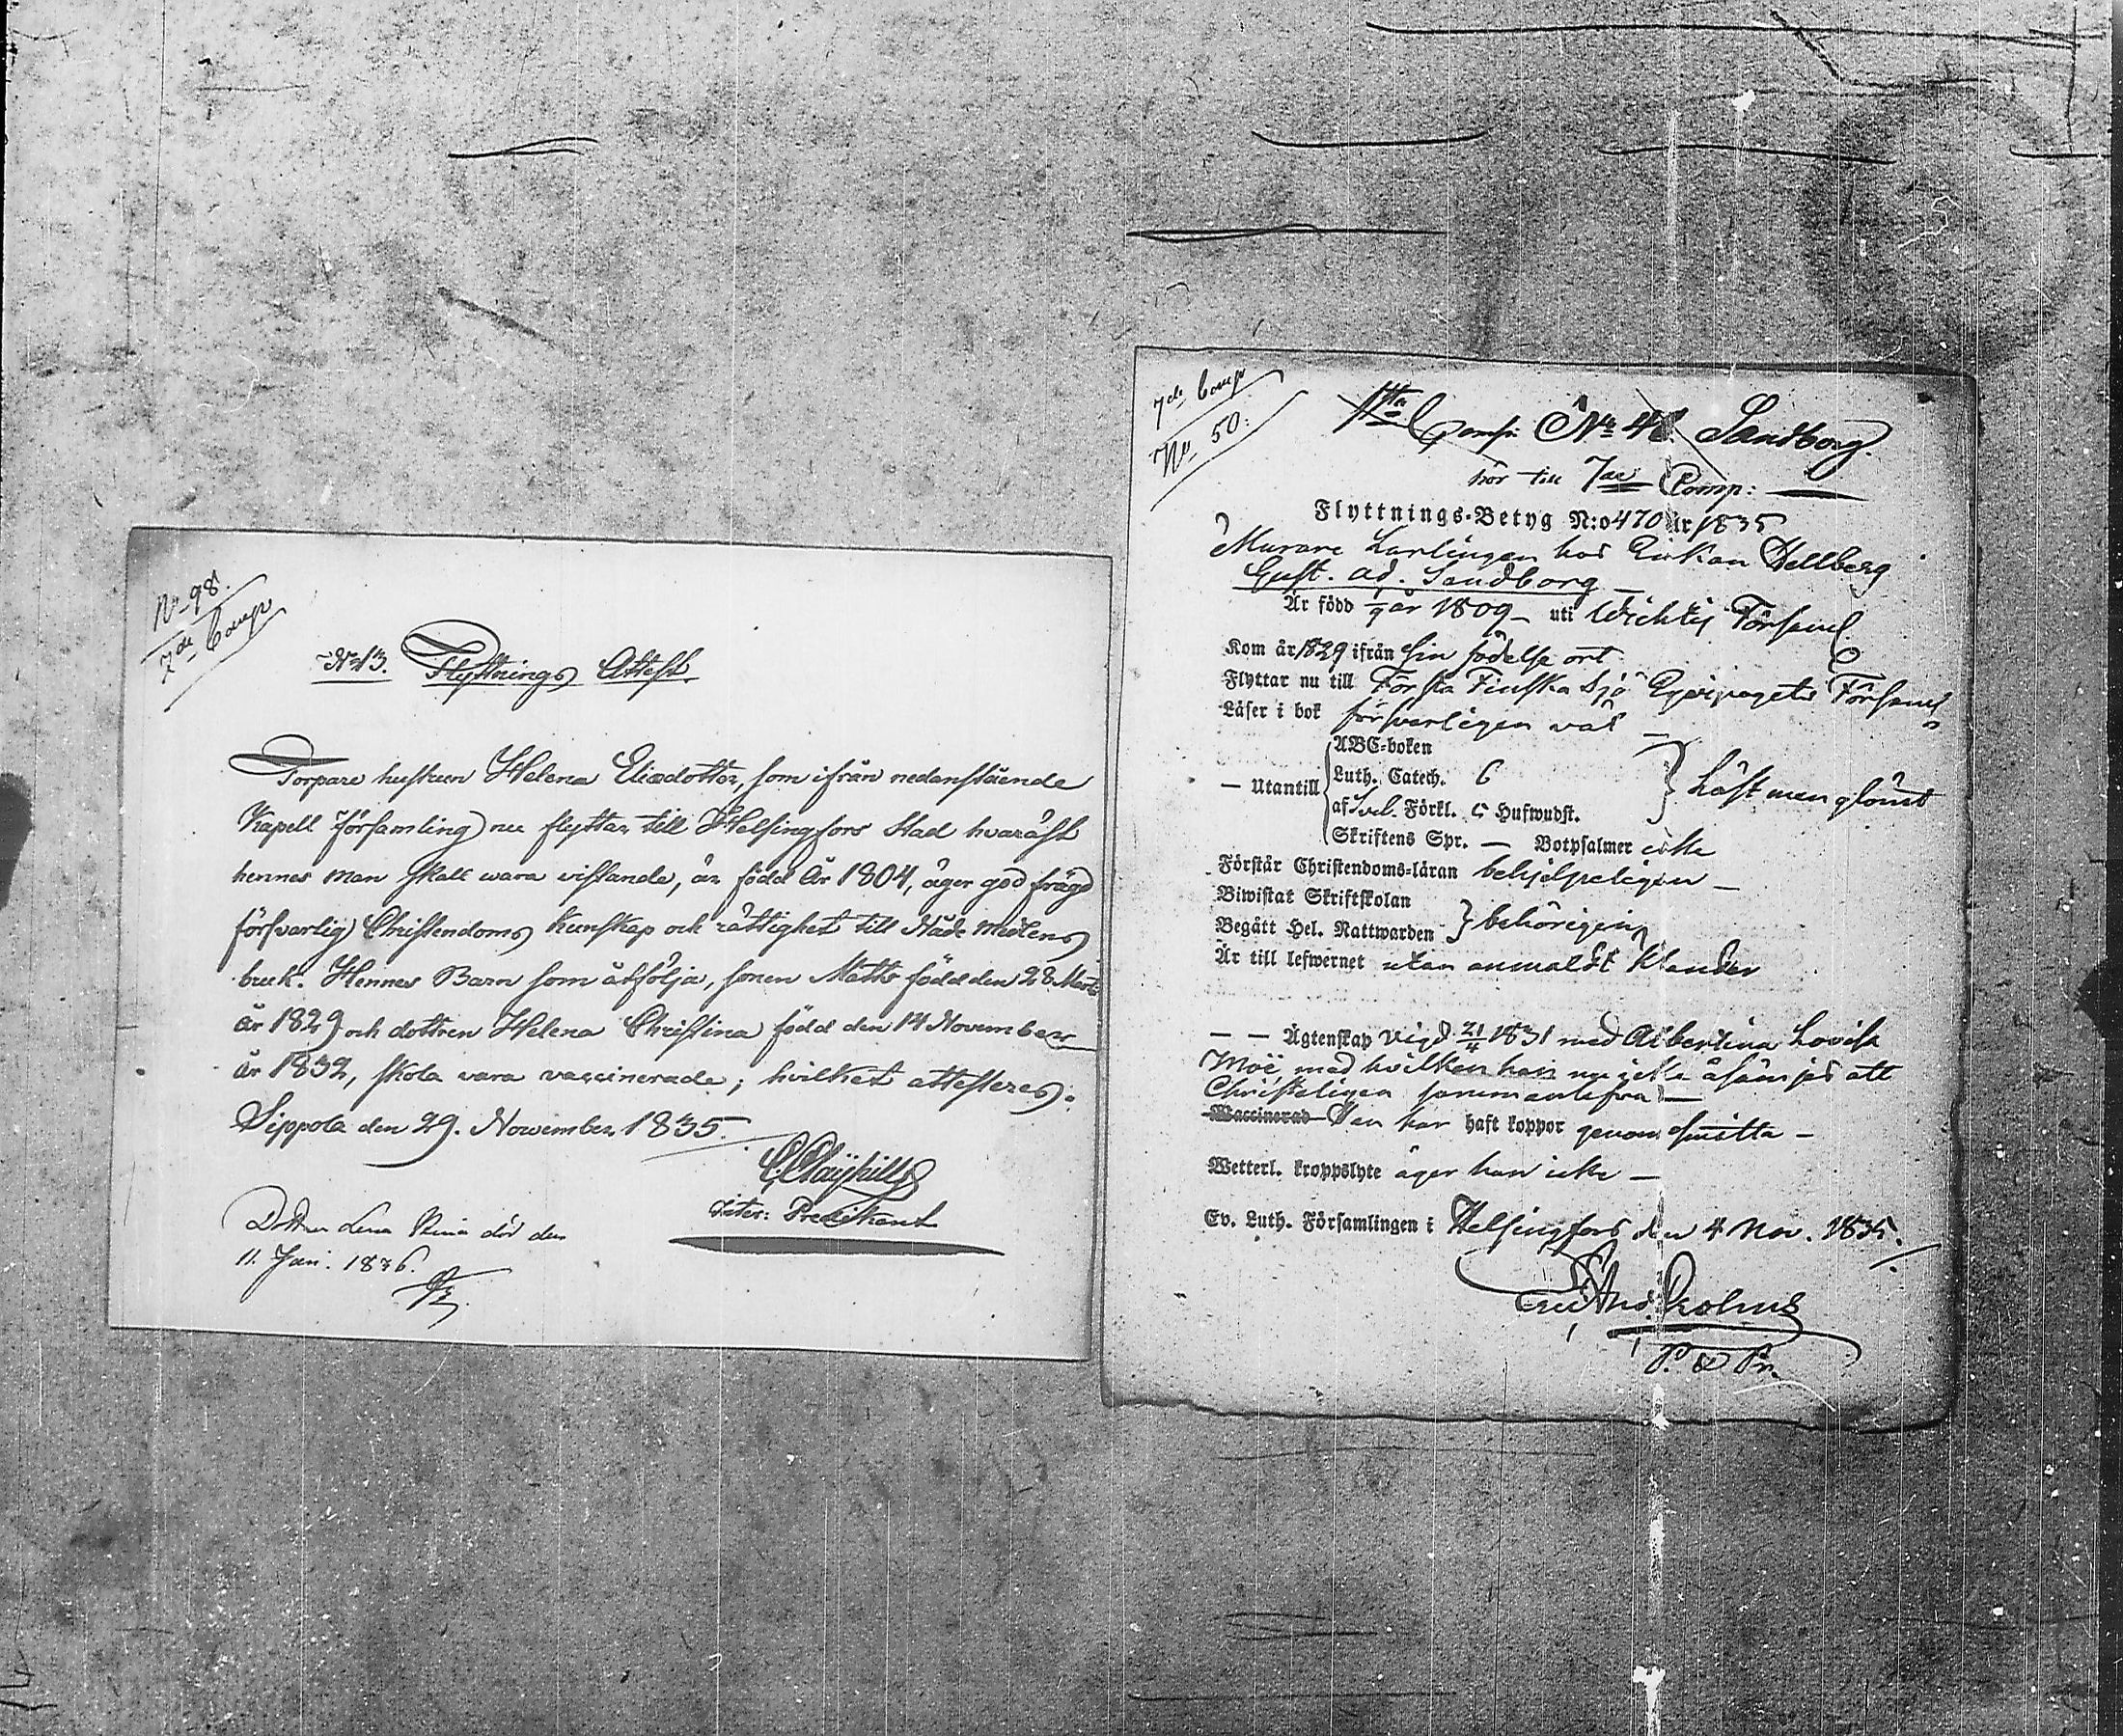 No 98.
7de Comp
No 13. Flyttnings Attest.
Torpare hustrun Helena Eliædotter, som ifrån nedanstående
Kapell församling nu flyttar till Helsingfors Stad hvaräst
hennes man skall wara vistande, är född År 1804, äger god frägd
försvarlig Christendoms kunskap och rättighet till Nåde medlens
bruk. Hennes Barn som åtfölja, sonen Matts född den 28 Marti
År 1829 och dottren Helena Christina född den 14 November
År 1832, skola vara vaccinerade; hvilket attesteres.
Sippola den 29. November 1835.
Inter: Predikant
Dottren Lena Stina död den
11. Jan. 1836.
7de Comp
No 50.
Comp. No Sandborg.
hör till 7de Comp:
Flyttnings-Betyg N:o 470 år 1835
Murare Lärlingen hos Enkan Hellberg
Gust. Ad. Sandborg
Är född år 1809 - uti Wichtis Församl
Kom år 1829 ifrån sin födelse ort
Flyttar nu till Första Finska Sjö Eqvipagets Församl
Läser i bok försvarligen väl
ABC-boken
— Utantill Luth. Catech. 6 Läst men glömt
af Svel. Förkl. 5 Hufwudst.
Skriftens Spr. — Botpsalmer icke
Förstår Christendoms-läran behjelpeligen —
Biwistat Skriftskolan
Begått Hel. Nattwarden behörigen
Är till lefwernet utan anmäldt klander
— — Ägtenskap vigd 21/4 1831 med Albertina Lovisa
Moë, med hvilken han nu icke åsämjes att
Christeligen sammanlefva —
Waccinerad Den har haft koppor genom smitta —
Wetterl. kroppslyte äger han icke —
Ev. Luth. Församlingen i Helsingfors den 4 Nov. 1835.